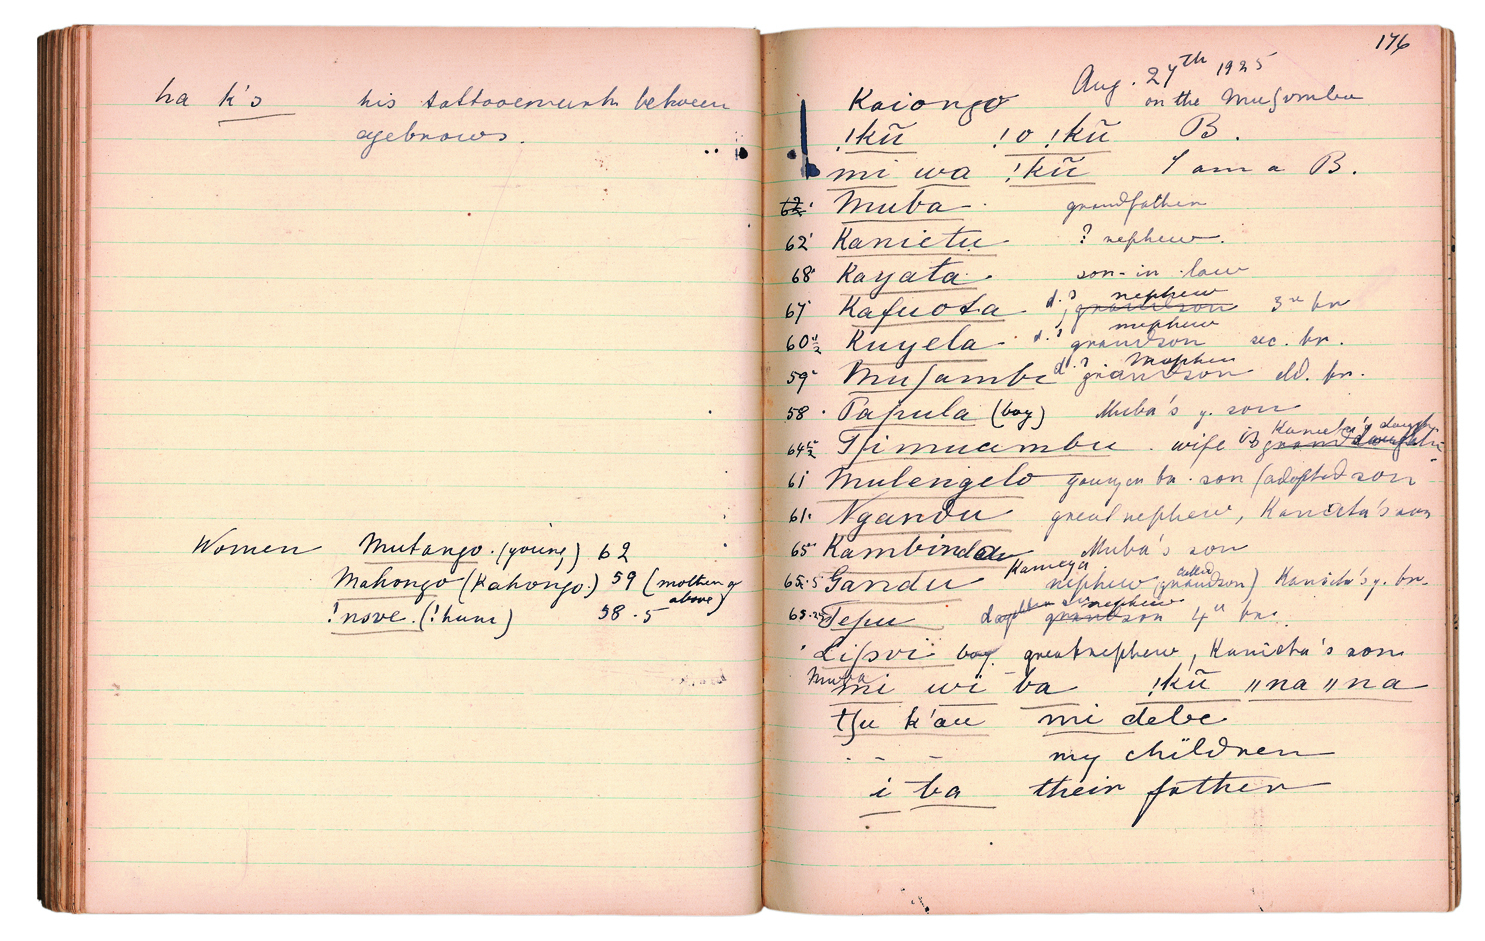 ha k's his tattooemark between
eyebrows.
Women Mutango. (young) 62
Mahongo (Kahongo) 59 (mother of
above)
!nove. (!hum) 58.5
176
Aug. 27th 1925
Kaiongo on the Muſombo
!kũ !o !kũ B.
mi wa !kũ I am a B.
Muba grandfather
62' Kanietu ? nephew.
68' Kayata son-in-law
nephew
67' Kafuota d.? grandson 3rd br
nephew
60½ Kuyela d.? grandson sec. br.
59 Muſambe d.? grandson eld. br.
58 Papula (boy) Muba's y. son
Kanieta's daugh
64½ Tſimuambu. wife is granddaughter
61 Mulengelo younger br. son (adopted son
61. Ngandu great nephew, Kanieta's son
65 Kambinda Muba's son
Kameya called
65.5 Gandu nephew (grandson) Kanieta's y. br.
nephew
65.25 Tepu grandson 4th br.
Liſovi boy. greatnephew, Kanieta's son
Muba
mi wi ba !kũ "na "na
tſu k'au mi debe
my children
i ba their father